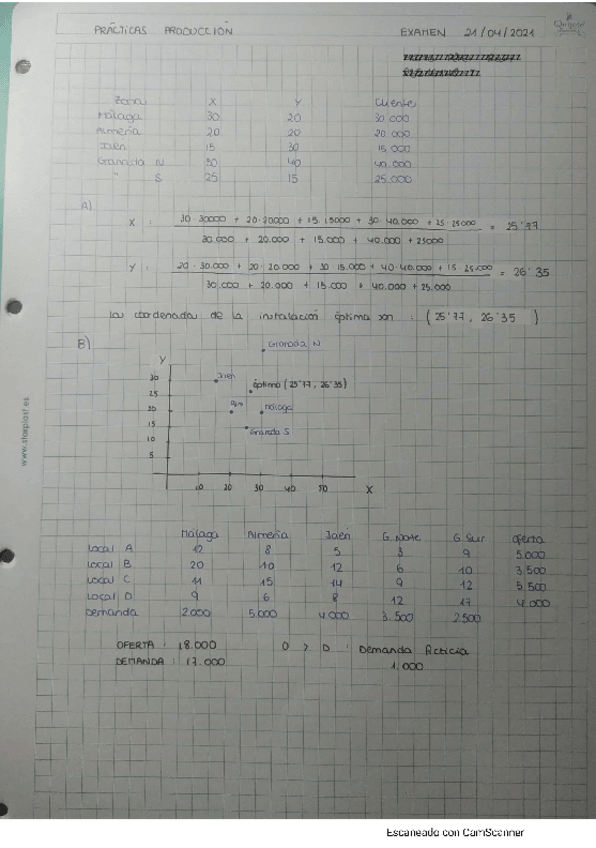 PRÁCTICAS PRODUCCIÓN
EXAMEN 21/04/2021
Zona X Y Cliente
Málaga 30 20 30 000
Almería 20 20 20 000
Jaén 15 30 15 000
Granada N 30 40 40.000
" S 25 15 25.000
A)
X : 30·30000 + 20·20000 + 15·15000 + 30·40.000 + 25·25000 = 25'77
30.000 + 20.000 + 15.000 + 40.000 + 25000
Y : 20·30.000 + 20·20.000 + 30·15.000 + 40·40.000 + 15·25.000 = 26'35
30.000 + 20.000 + 15.000 + 40.000 + 25.000
Las coordenadas de la instalación óptima son : (25'77, 26'35)
B)
Granada N
Y
30
Jaén
óptimo (25'77, 26'35)
25
20
Málaga
15
Granada S
10
5
10 20 30 40 50 X
Málaga Almería Jaén G. Norte G. Sur Oferta
Local A 12 8 5 3 9 5.000
Local B 20 10 12 6 10 3.500
Local C 11 15 14 9 12 5.500
Local D 9 6 8 12 17 4.000
Demanda 2.000 5.000 4.000 3.500 2500
OFERTA : 18.000 O > D : Demanda Ficticia
DEMANDA : 17.000 1.000
www.starplast.es
Escaneado con CamScanner